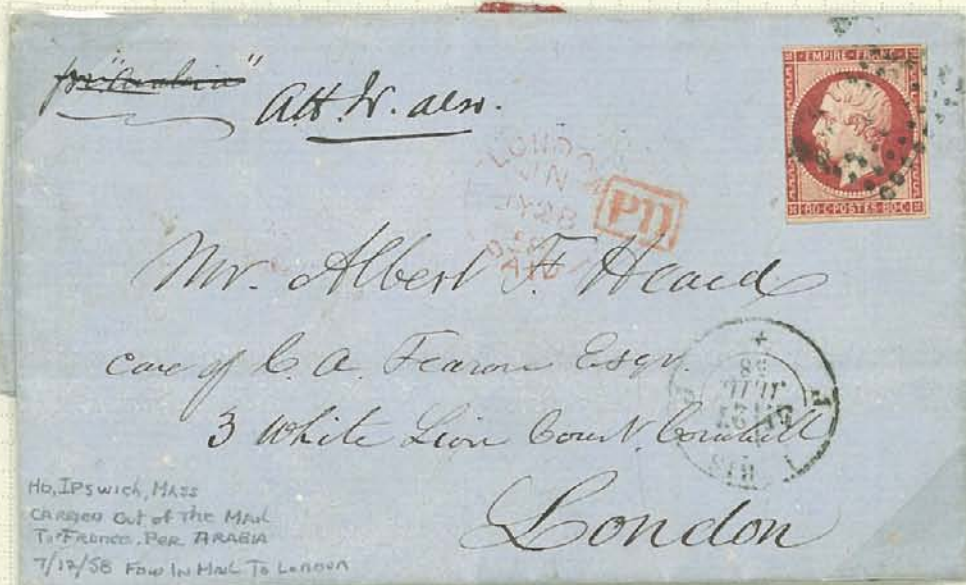 pr "Arabia"
EMPIRE FRANC
80·C·POSTES·80·C
LONDON
JY 28
58
PAID
PD
Mr. Albert F. Heard
care of C. A. Fearon Esqr.
3 White Lion Court Cornhill
London
JUIL
58
Ho, IPswich, MASS
CARRIED Out of THE MAIL
To France. PER ARABIA
7/12/58 Fow IN MAIL To LONDON